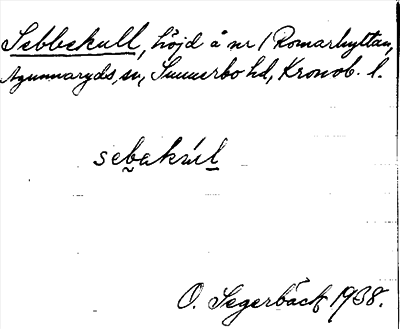 Sebbekull, höjd å nr 1 Romarhyttan,
Agunnaryds sn, Sunnerbo hd, Kronob. l.
sebakul
O. Segerbäck 1938.